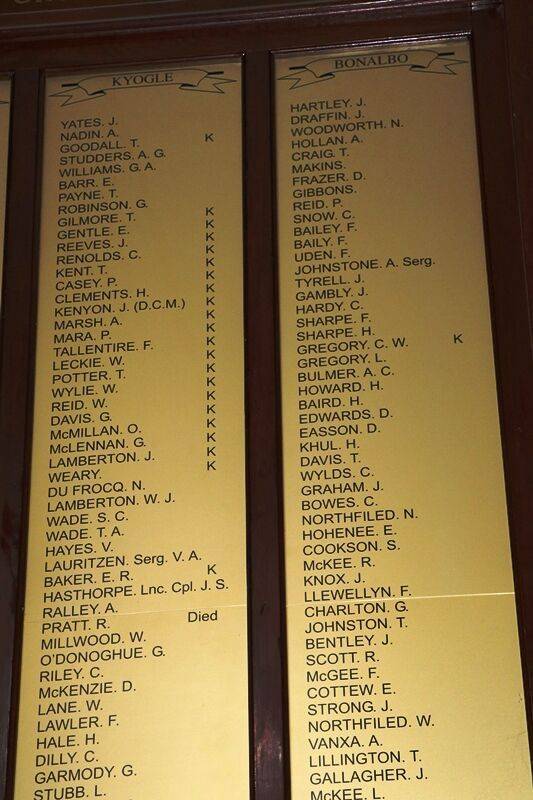 KYOGLE
YATES. J.
NADIN. A.
GOODALL. T. K
STUDDERS. A. G.
WILLIAMS. G. A.
BARR. E.
PAYNE. T.
ROBINSON. G.
GILMORE. T. K
GENTLE. E. K
REEVES. J. K
RENOLDS. C. K
KENT. T. K
CASEY. P. K
CLEMENTS. H. K
KENYON. J. (D.C.M.) K
MARSH. A. K
MARA. P. K
TALLENTIRE. F. K
LECKIE. W. K
POTTER. T. K
WYLIE. W. K
REID. W. K
DAVIS. G. K
McMILLAN. O. K
McLENNAN. G. K
LAMBERTON. J. K
WEARY. K
DU FROCQ. N.
LAMBERTON. W. J.
WADE. S. C.
WADE. T. A.
HAYES. V.
LAURITZEN. Serg. V. A.
BAKER. E. R. K
HASTHORPE. Lnc. Cpl. J. S.
RALLEY. A.
PRATT. R. Died
MILLWOOD. W.
O'DONOGHUE. G.
RILEY. C.
McKENZIE. D.
LANE. W.
LAWLER. F.
HALE. H.
DILLY. C.
GARMODY. G.
STUBB. L.
BONALBO
HARTLEY. J.
DRAFFIN. J.
WOODWORTH. N.
HOLLAN. A.
CRAIG. T.
MAKINS.
FRAZER. D.
GIBBONS.
REID. P.
SNOW. C.
BAILEY. F.
BAILY. F.
UDEN. F.
JOHNSTONE. A. Serg.
TYRELL. J.
GAMBLY. J.
HARDY. C.
SHARPE. F.
SHARPE. H.
GREGORY. C. W. K
GREGORY. L.
BULMER. A. C.
HOWARD. H.
BAIRD. H.
EDWARDS. D.
EASSON. D.
KHUL. H.
DAVIS. T.
WYLDS. C.
GRAHAM. J.
BOWES. C.
NORTHFILED. N.
HOHENEE. E.
COOKSON. S.
McKEE. R.
KNOX. J.
LLEWELLYN. F.
CHARLTON. G.
JOHNSTON. T.
BENTLEY. J.
SCOTT. R.
McGEE. F.
COTTEW. E.
STRONG. J.
NORTHFILED. W.
VANXA. A.
LILLINGTON. T.
GALLAGHER. J.
McKEE. L.